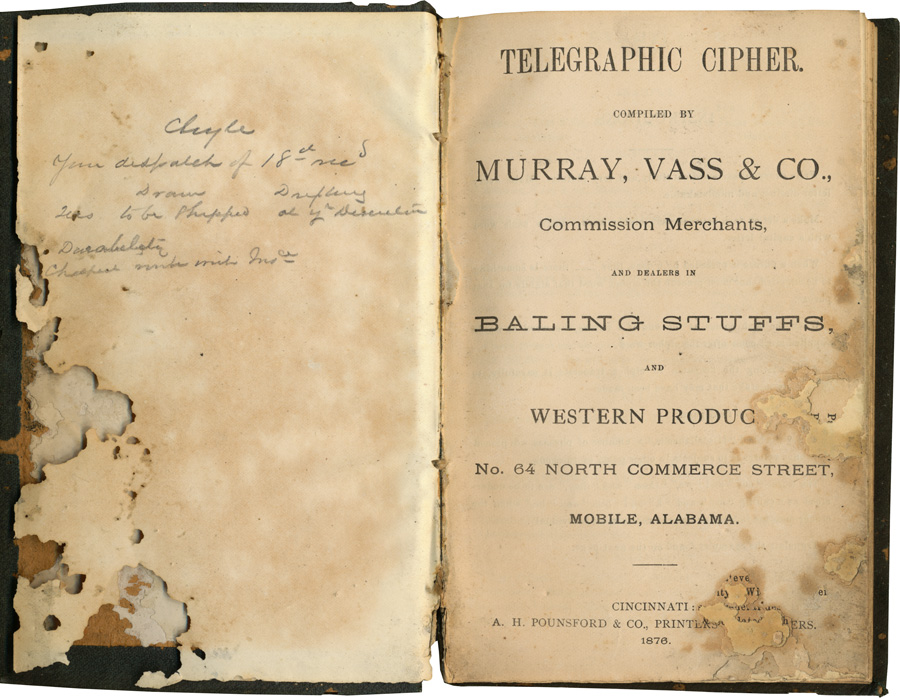 Chyle
Your despatch of 18th rec'd
Draw Drifting
to be Shipped at yr Discretion
Durability
Cheapest with Insce
TELEGRAPHIC CIPHER.
COMPILED BY
MURRAY, VASS & CO.,
Commission Merchants,
AND DEALERS IN
BALING STUFFS,
AND
WESTERN PRODUC
No. 64 NORTH COMMERCE STREET,
MOBILE, ALABAMA.
CINCINNATI:
A. H. POUNSFORD & CO., PRINTERS
1876.